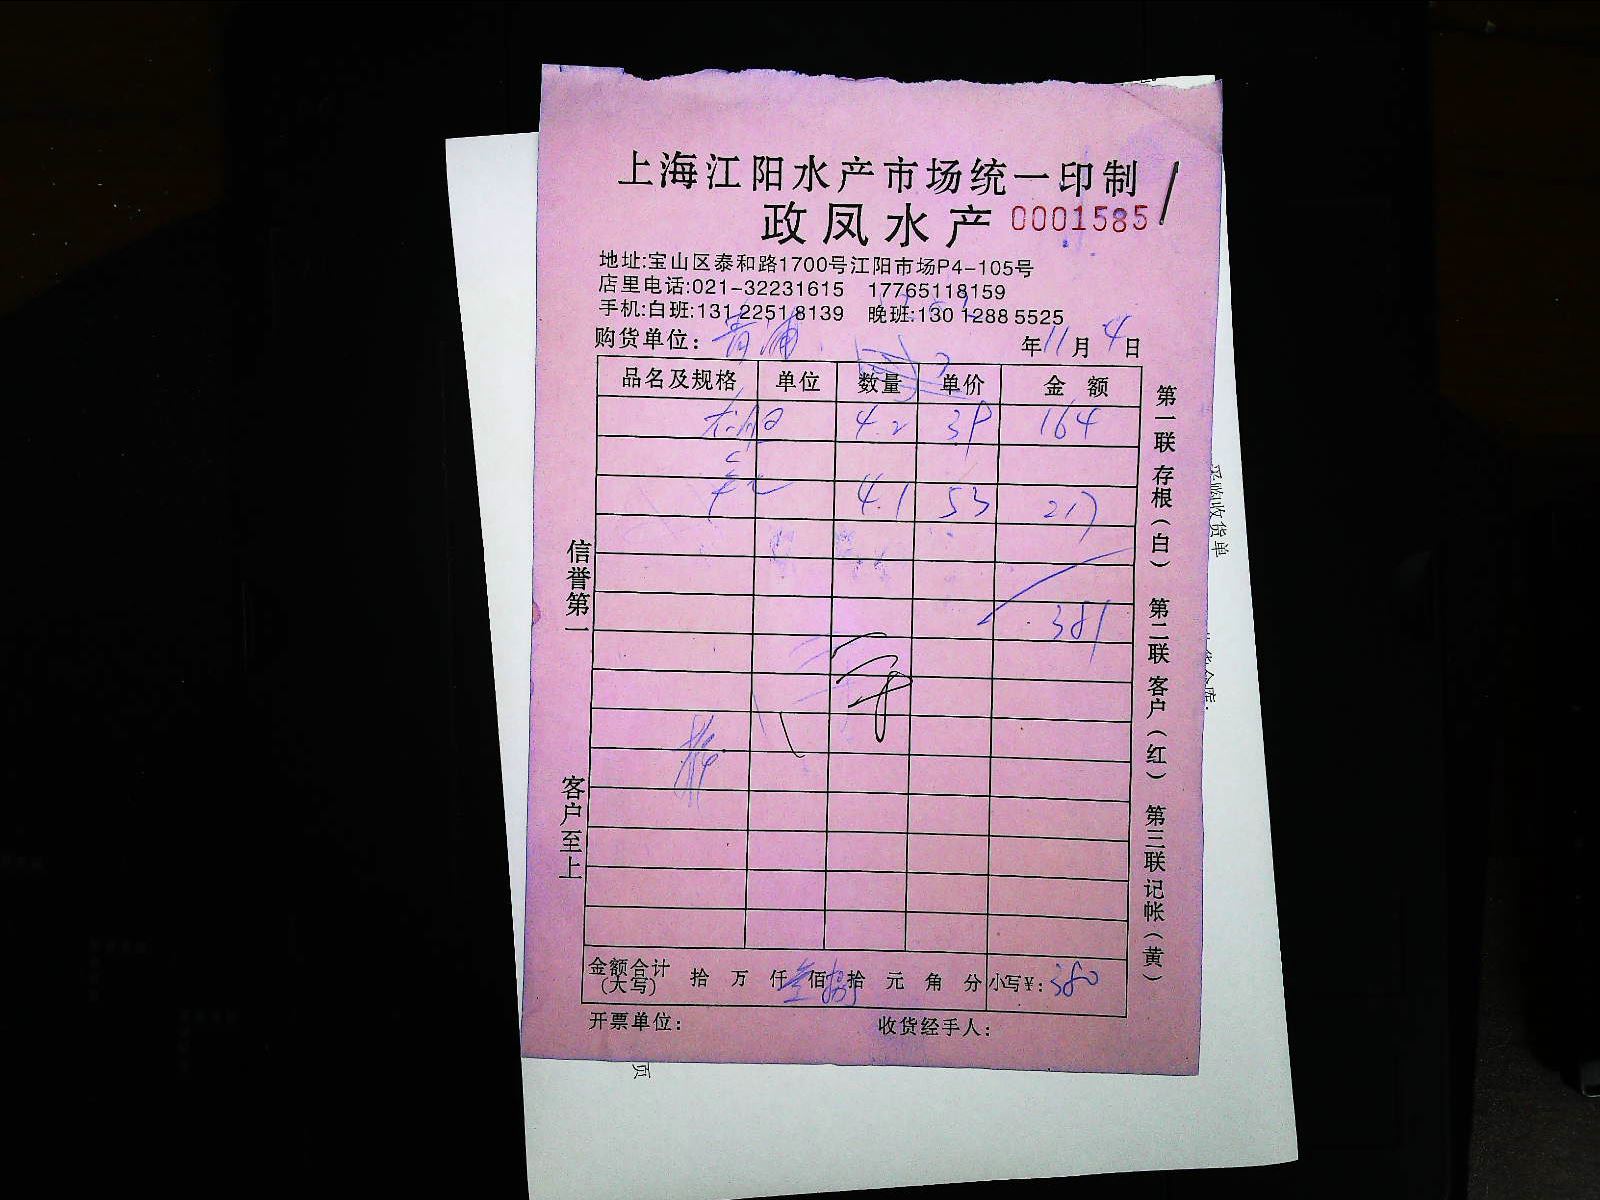 上海江阳水产市场统一印制
政凤水产 0001585
地址:宝山区泰和路1700号江阳市场P4-105号
店里电话:021-32231615 17765118159
手机:白班:131 2251 8139 晚班:130 1288 5525
购货单位: 青浦 年 11 月 4 日
品名及规格 单位 数量 单价 金额
4.2 39 164
4.1 53 217
381
金额合计(大写) 拾 万 仟 叁 佰 捌 拾 元 角 分 小写¥: 380
开票单位: 收货经手人:
信誉第一
客户至上
第一联 存根(白) 第二联 客户(红) 第三联 记帐(黄)
采购收货单
页